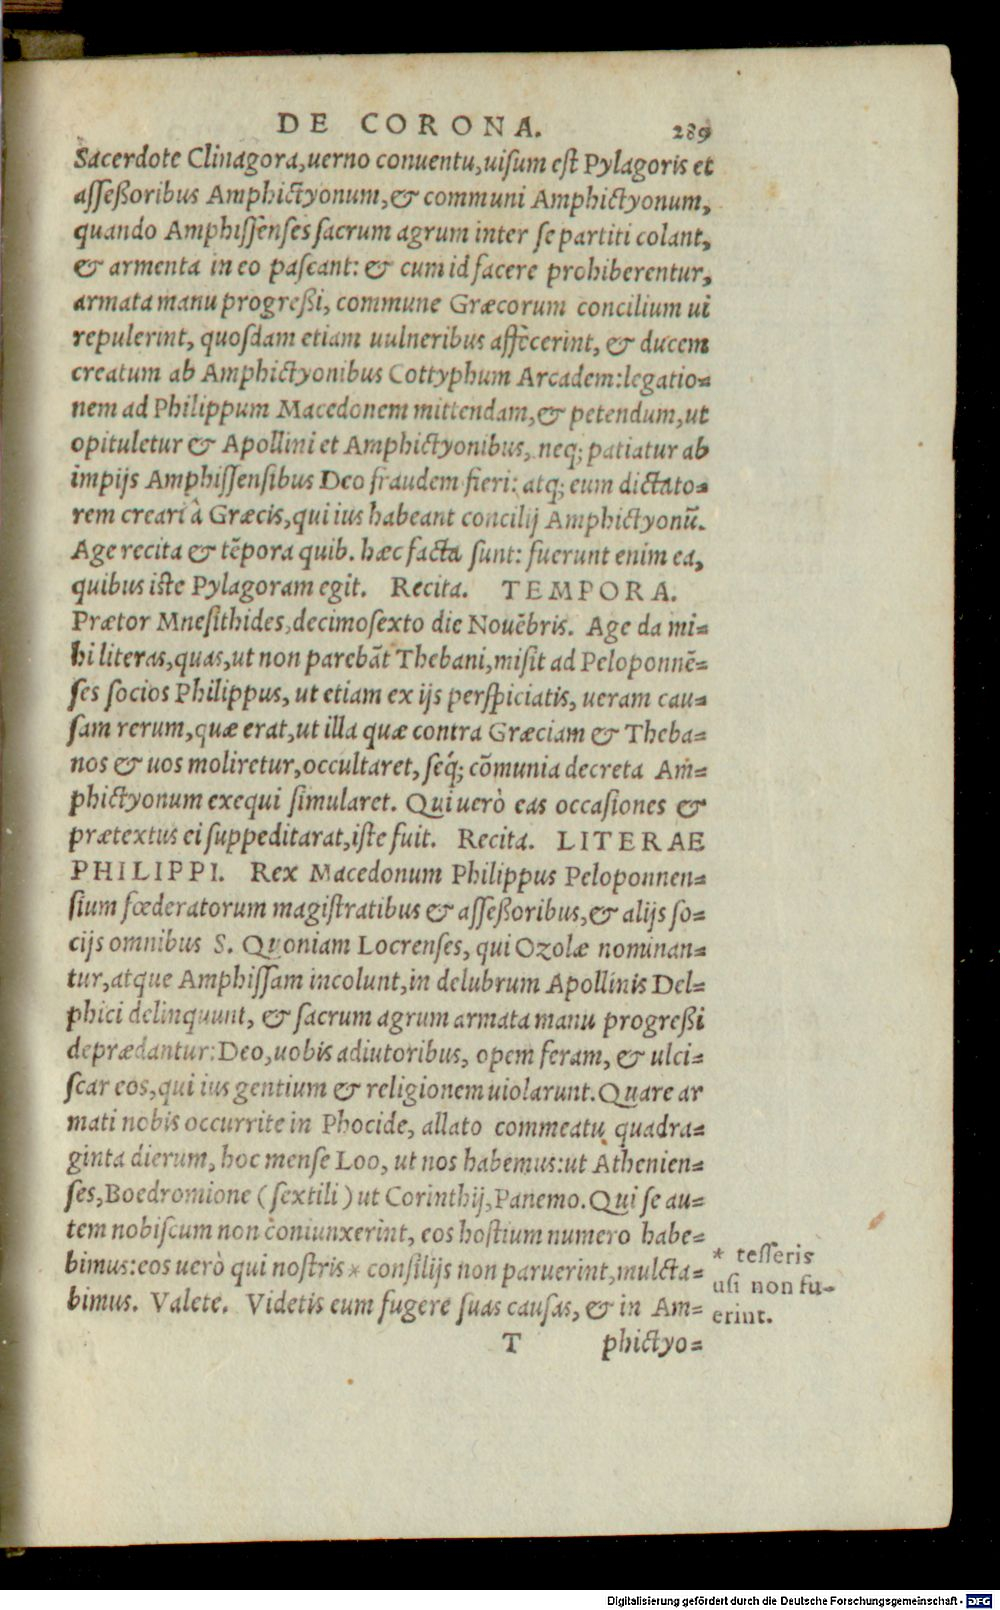 DE CORONA. 289
Sacerdote Clinagora, uerno conuentu, uisum est Pylagoris et
assessoribus Amphictyonum, & communi Amphictyonum,
quando Amphissenses sacrum agrum inter se partiti colant,
& armenta in eo pascant: & cum id facere prohiberentur,
armata manu progreßi, commune Græcorum concilium ui
repulerint, quosdam etiam uulneribus affecerint, & ducem
creatum ab Amphictyonibus Cottyphum Arcadem: legatio=
nem ad Philippum Macedonem mittendam, & petendum, ut
opituletur & Apollini et Amphictyonibus, neq; patiatur ab
impijs Amphissensibus Deo fraudem fieri: atq; eum dictato=
rem creari à Græcis, qui ius habeant concilij Amphictyonū.
Age recita & tēpora quib. hæc facta sunt: fuerunt enim ea,
quibus iste Pylagoram egit. Recita. TEMPORA.
Prætor Mnesithides, decimosexto die Nouēbris. Age da mi=
hi literas, quas, ut non parebāt Thebani, misit ad Peloponnē=
ses socios Philippus, ut etiam ex ijs perspiciatis, ueram cau=
sam rerum, quæ erat, ut illa quæ contra Græciam & Theba=
nos & uos moliretur, occultaret, seq́; cōmunia decreta Am=
phictyonum exequi simularet. Qui uerò eas occasiones &
prætextus ei suppeditarat, iste fuit. Recita. LITERAE
PHILIPPI. Rex Macedonum Philippus Peloponnen=
sium fœderatorum magistratibus & asseßoribus, & alijs so=
cijs omnibus S. Quoniam Locrenses, qui Ozolæ nominan=
tur, atque Amphissam incolunt, in delubrum Apollinis Del=
phici delinquunt, & sacrum agrum armata manu progreßi
deprædantur: Deo, uobis adiutoribus, opem feram, & ulci=
scar eos, qui ius gentium & religionem uiolarunt. Quare ar
mati nobis occurrite in Phocide, allato commeatu quadra=
ginta dierum, hoc mense Loo, ut nos habemus: ut Athenien=
ses, Boedromione (sextili) ut Corinthij, Panemo. Qui se au=
tem nobiscum non coniunxerint, eos hostium numero habe=
bimus: eos uerò qui nostris * consilijs non paruerint, mulcta=
bimus. Valete. Videtis eum fugere suas causas, & in Am=
* tesseris
usi non fu=
erint.
T phictyo=
Digitalisierung gefördert durch die Deutsche Forschungsgemeinschaft - DFG